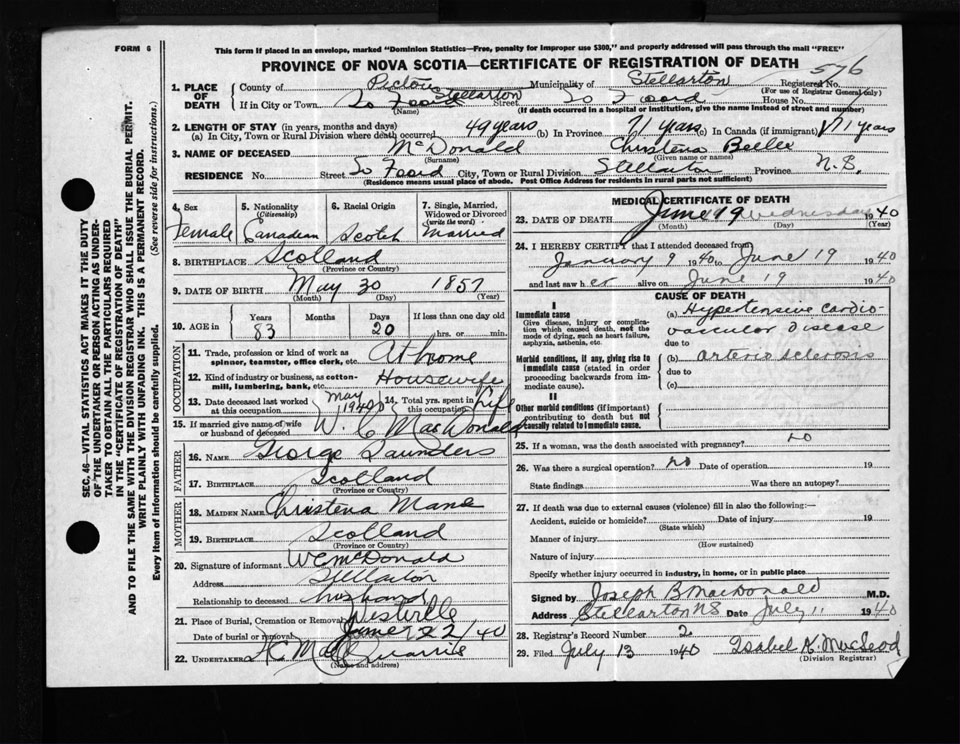 FORM 6
This form if placed in an envelope, marked "Dominion Statistics—Free, penalty for improper use $300," and properly addressed will pass through the mail "FREE"
PROVINCE OF NOVA SCOTIA—CERTIFICATE OF REGISTRATION OF DEATH
576
1. PLACE OF DEATH County of Pictou Municipality of Stellarton Registered No.
(For use of Registrar General only)
If in City or Town Stellarton So Foord Street So Foord House No.
(Name) (If death occurred in a hospital or institution, give the name instead of street and number)
2. LENGTH OF STAY (in years, months and days)
(a) In City, Town or Rural Division where death occurred 49 years (b) In Province 71 years (c) In Canada (if immigrant) 71 years
3. NAME OF DECEASED McDonald Christena Bellee
(Surname) (Given name or names)
RESIDENCE No. Street So Foord City, Town or Rural Division Stellarton Province N.S.
(Residence means usual place of abode. Post Office Address for residents in rural parts not sufficient)
4. Sex Female
5. Nationality (Citizenship) Canadian
6. Racial Origin Scotch
7. Single, Married, Widowed or Divorced (write the word) Married
8. BIRTHPLACE Scotland
(Province or Country)
9. DATE OF BIRTH May 30 1857
(Month) (Day) (Year)
10. AGE in Years Months Days If less than one day old
83 20 hrs. or min.
OCCUPATION
11. Trade, profession or kind of work as spinner, teamster, office clerk, etc. At home
12. Kind of industry or business, as cotton-mill, lumbering, bank, etc. Housewife
13. Date deceased last worked at this occupation May 1940
14. Total yrs. spent in this occupation Life
15. If married give name of wife or husband of deceased W. C MacDonald
FATHER
16. NAME George Saunders
17. BIRTHPLACE Scotland
(Province or Country)
MOTHER
18. MAIDEN NAME Christena Mann
19. BIRTHPLACE Scotland
(Province or Country)
20. Signature of informant W C McDonald
Address Stellarton
Relationship to deceased husband
21. Place of Burial, Cremation or Removal Westville
Date of burial or removal June 22/40
22. UNDERTAKER
(Name and address)
MEDICAL CERTIFICATE OF DEATH
23. DATE OF DEATH June 19 Wednesday 1940
(Month) (Day) (Year)
24. I HEREBY CERTIFY that I attended deceased from
January 9 1940 to June 19 1940
and last saw her alive on June 19 1940
CAUSE OF DEATH
I
Immediate cause
Give disease, injury or complication which caused death, not the mode of dying, such as heart failure, asphyxia, asthenia, etc.
(a) Hypertensive Cardio vascular Disease
due to
Morbid conditions, if any, giving rise to immediate cause (stated in order proceeding backwards from immediate cause).
(b) arterio sclerosis
due to
(c)
II
Other morbid conditions (if important) contributing to death but not causally related to immediate cause.
25. If a woman, was the death associated with pregnancy? no
26. Was there a surgical operation? no Date of operation 19
State findings Was there an autopsy?
27. If death was due to external causes (violence) fill in also the following:—
Accident, suicide or homicide? Date of injury 19
(State which)
Manner of injury
(How sustained)
Nature of injury
Specify whether injury occurred in industry, in home, or in public place
Signed by Joseph B MacDonald M.D.
Address Stellarton NS Date July 11 1940
28. Registrar's Record Number 2
29. Filed July 13 1940 Isabel G. MacLeod
(Division Registrar)
SEC. 46—VITAL STATISTICS ACT MAKES IT THE DUTY
OF THE UNDERTAKER OR PERSON ACTING AS UNDER-
TAKER TO OBTAIN ALL THE PARTICULARS REQUIRED
IN THE "CERTIFICATE OF REGISTRATION OF DEATH"
AND TO FILE THE SAME WITH THE DIVISION REGISTRAR WHO SHALL ISSUE THE BURIAL PERMIT.
WRITE PLAINLY WITH UNFADING INK. THIS IS A PERMANENT RECORD.
Every item of information should be carefully supplied. (See reverse side for instructions.)